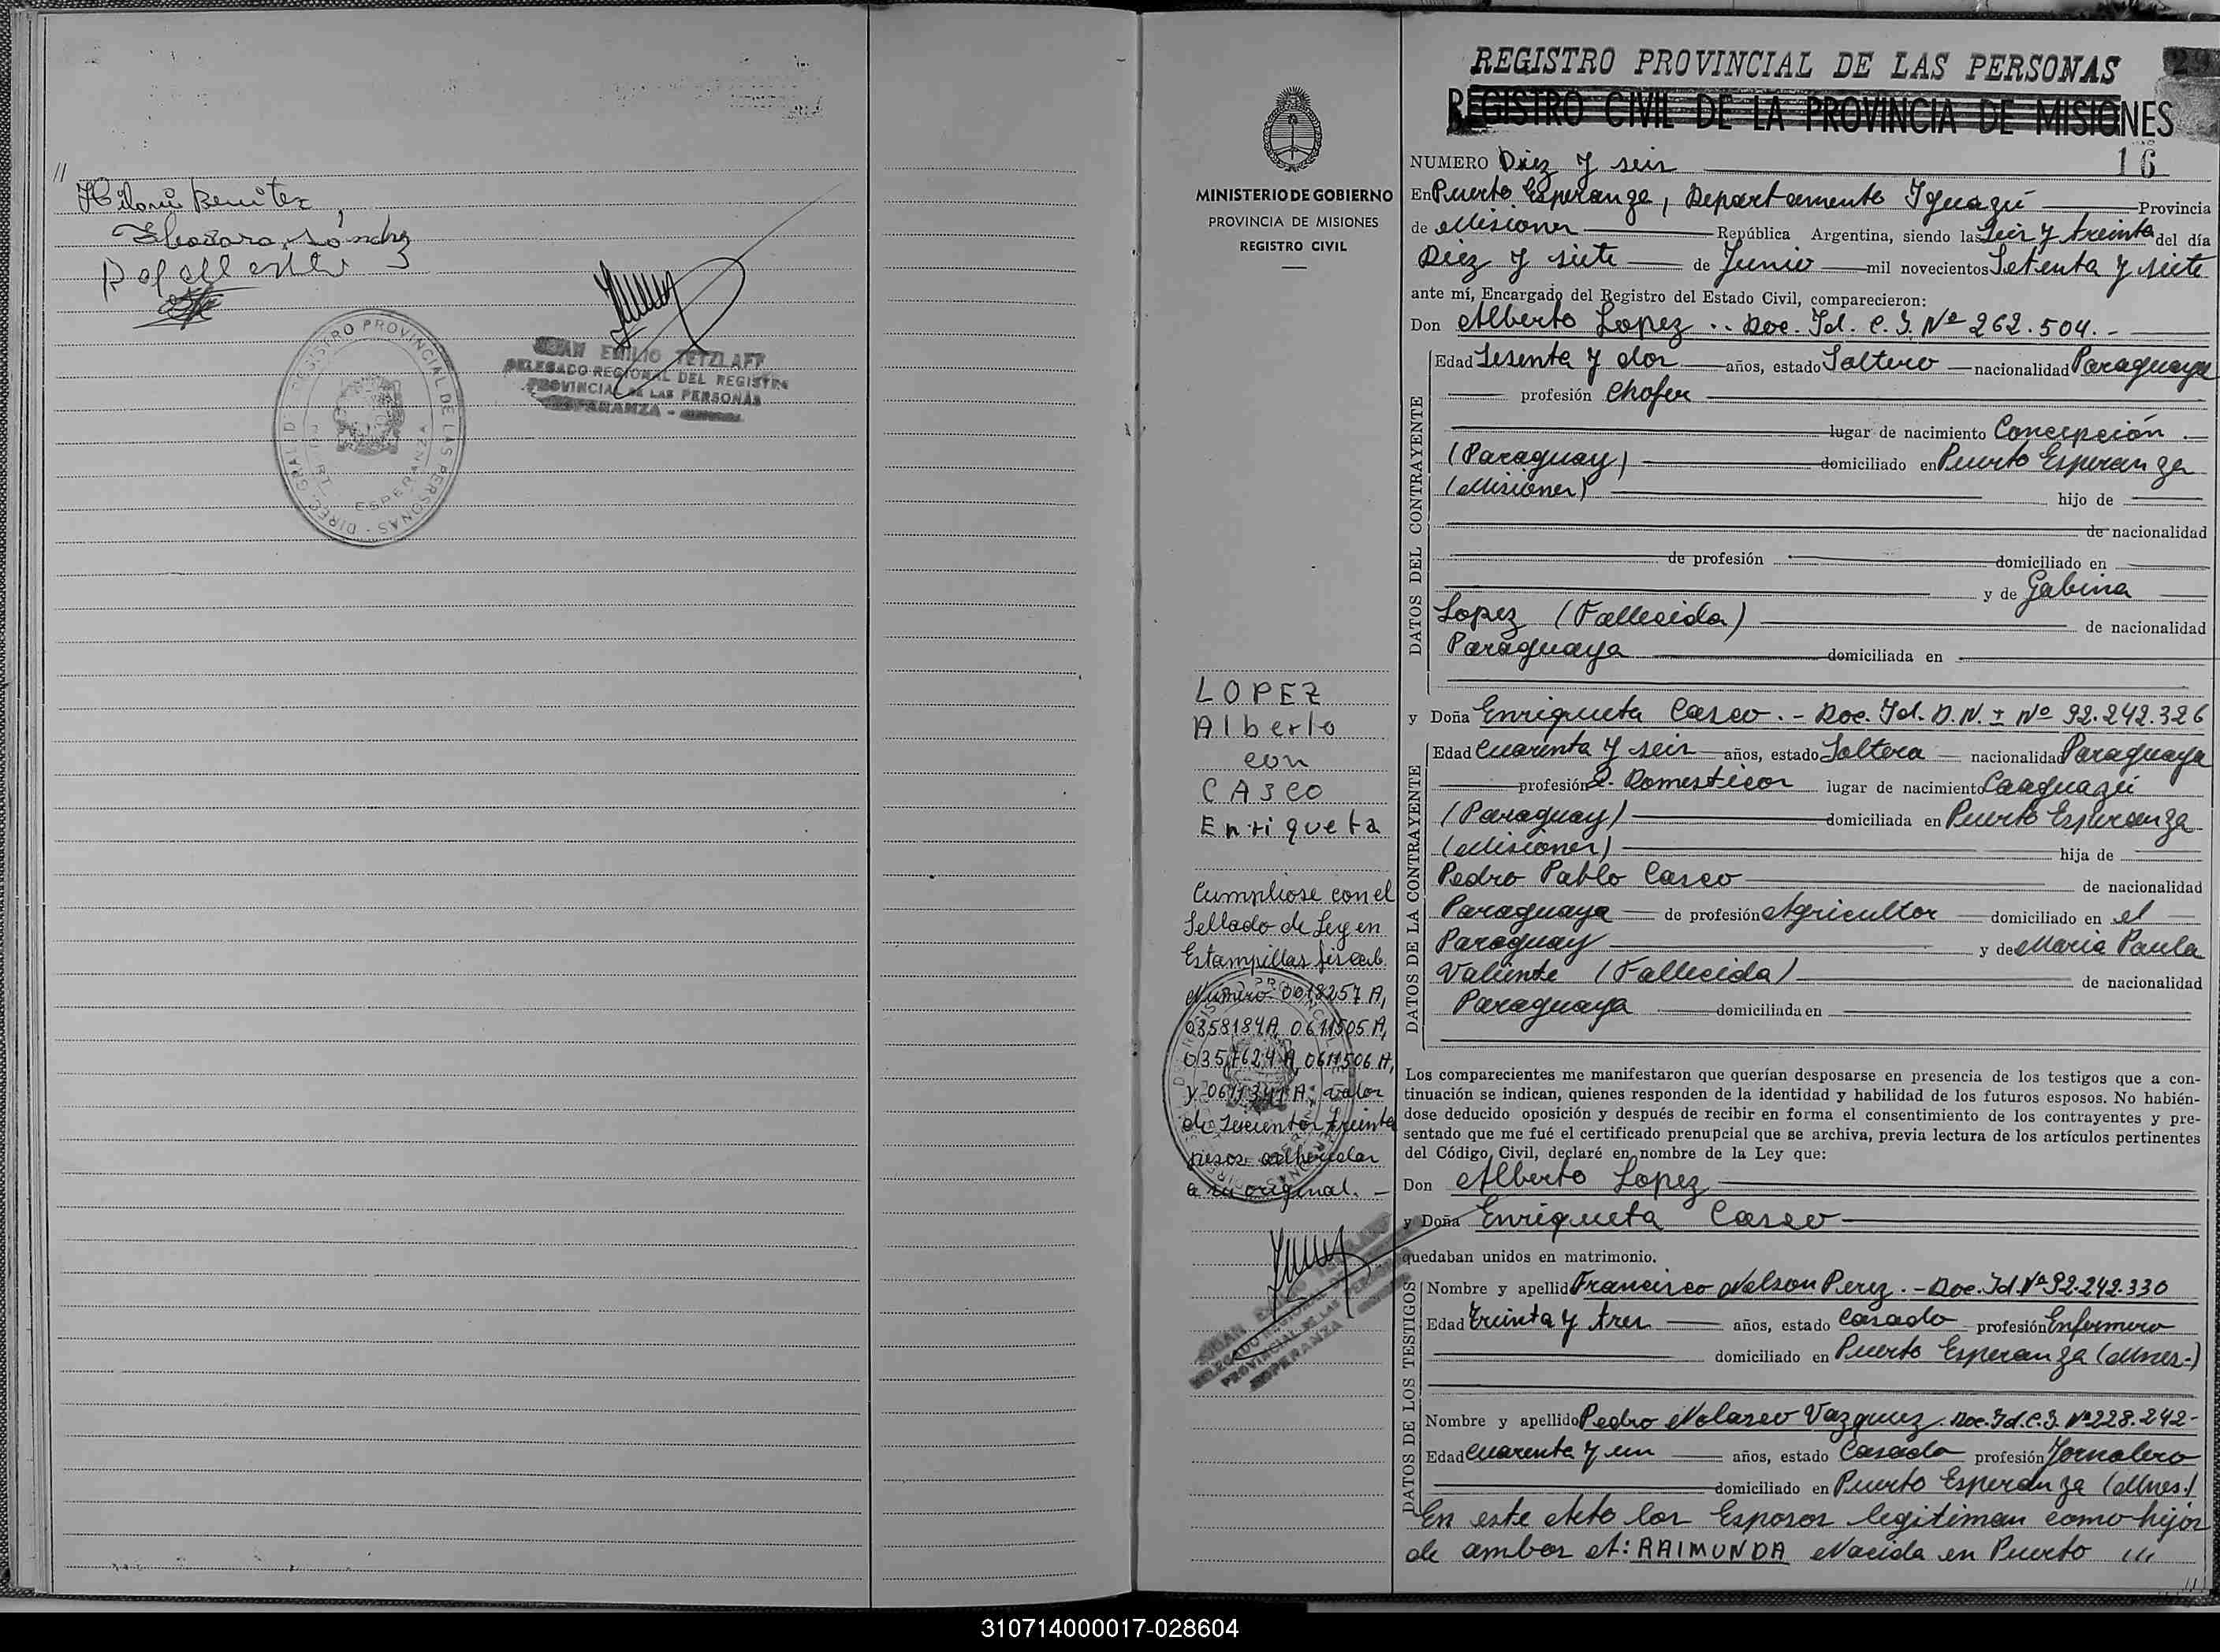 //
Hilario Benitez
REGISTRO PROVINCIAL DE LAS PERSONAS
ESPERANZA
JUAN EMILIO TETZLAFF
DELEGADO REGIONAL DEL REGISTRO
PROVINCIAL DE LAS PERSONAS
ESPERANZA -
MINISTERIO DE GOBIERNO
PROVINCIA DE MISIONES
REGISTRO CIVIL
LOPEZ
Alberto
con
CASCO
Enriqueta
Cumpliose con el
Sellado de Ley en
Estampillas fiscal.
Numero 0018257 A,
0358184A, 0611505 A,
0357624 A, 0611506 A,
y A. valor
de treinta
pesos adheridas
a su original. -
JUAN EMILIO TETZLAFF
DELEGADO REGIONAL DEL REGISTRO
PROVINCIAL DE LAS PERSONAS
ESPERANZA
REGISTRO PROVINCIAL DE LAS PERSONAS
29
REGISTRO CIVIL DE LA PROVINCIA DE MISIONES
NUMERO Diez y seis 16
En Puerto Esperanza, Departamento Iguazú Provincia
de Misiones República Argentina, siendo las Seis y treinta del día
Diez y siete de Junio mil novecientos Setenta y siete
ante mí, Encargado del Registro del Estado Civil, comparecieron:
Don Alberto Lopez .- Doc. Id. C. I. Nº 262.504.-
DATOS DEL CONTRAYENTE
Edad Sesenta y dos años, estado Soltero nacionalidad Paraguaya
profesión Chofer
lugar de nacimiento Concepción.
(Paraguay) domiciliado en Puerto Esperanza
(Misiones) hijo de
de nacionalidad
de profesión domiciliado en
y de Gabina
Lopez (Fallecida) de nacionalidad
Paraguaya domiciliada en
y Doña Enriqueta Casco.- Doc. Id. D.N.I Nº 92.242.326
DATOS DE LA CONTRAYENTE
Edad Cuarenta y seis años, estado Soltera nacionalidad Paraguaya
profesión Q. Domesticos lugar de nacimiento Caaguazú
(Paraguay) domiciliada en Puerto Esperanza
(Misiones) hija de
Pedro Pablo Casco de nacionalidad
Paraguaya de profesión Agricultor domiciliado en el
Paraguay y de Maria Paula
Valiente (Fallecida) de nacionalidad
Paraguaya domiciliada en
Los comparecientes me manifestaron que querían desposarse en presencia de los testigos que a con-
tinuación se indican, quienes responden de la identidad y habilidad de los futuros esposos. No habién-
dose deducido oposición y después de recibir en forma el consentimiento de los contrayentes y pre-
sentado que me fué el certificado prenupcial que se archiva, previa lectura de los artículos pertinentes
del Código Civil, declaré en nombre de la Ley que:
Don Alberto Lopez
y Doña Enriqueta Casco
quedaban unidos en matrimonio.
DATOS DE LOS TESTIGOS
Nombre y apellido Francisco Nelson Perez.- Doc. Id. Nº 92.242.330
Edad Treinta y tres años, estado Casado profesión Enfermero
domiciliado en Puerto Esperanza (Mnes.-)
Nombre y apellido Pedro Nolasco Vazquez. Doc. Id. C. I. Nº 228.242-
Edad Cuarenta y un años, estado Casado profesión Jornalero
domiciliado en Puerto Esperanza (Mnes.)
En este Acto los Esposos legitiman como hijos
de ambos A: RAIMUNDA Nacida en Puerto ///
///
310714000017-028604